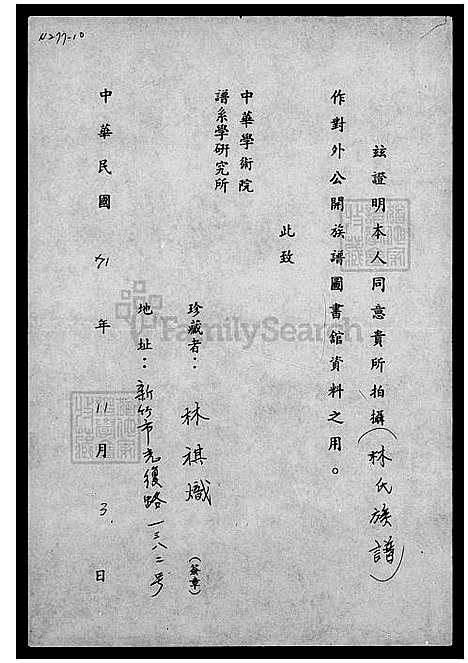 N277-10
茲證明本人同意貴所拍攝(林氏族譜)
作對外公開族譜圖書館資料之用。
此致
中華學術院
譜系學研究所
珍藏者：林祺熾(簽章)
地址：新竹市光復路一三八二号
中華民國 年11月3日
FamilySearch